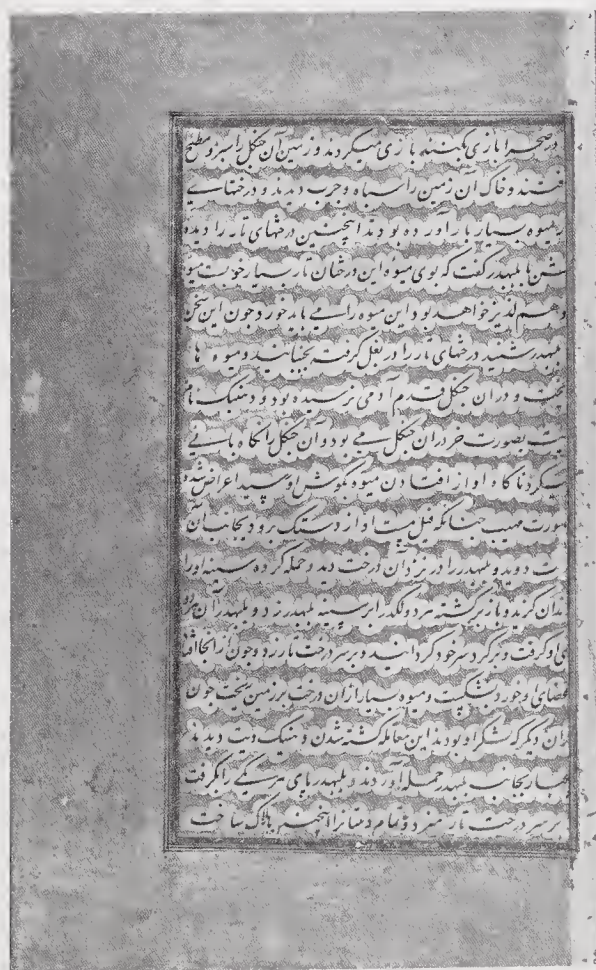 در صحرا بازی بکنند بازی میکردند و زمین آن جنکل را سبز و مطبخ
فتند و خاک آن زمین را سیاه و چرب دیدند و درختهایے
میوه بسیار بار آورده بودند اینچنین درختهای تار را دیده
شن با بلبهدر کفت که بوی میوه این درختان تار بسیار خوبست میو
وهم لذیز خواهد بود این میوه را مے باید خورد چون این سخن
بلبهدر شنید درختهای تار را در بغل کرفت بجنبانید و میوه ها
و دران جنکل قدم آدمی نرسیده بود و دهنیک نام
بصورت خر دران جنکل مے بود و آن جنکل را نکاه بانے
میکرد ناکاه اواز افتادن میوه بکوش او رسید اعراض شد
صورت مهیب چنانکه فیل مست اواز دستیک برو دیجانب آن
ت دوید و بلبهدر را در نزد آن درخت دید و حمله کرده سینه اورا
ندان کزید و باز برکشته هر دو لکد را بر سینه بلبهدر زد و بلبهدر آن هردو
ی او کرفت و بر کرد سر خود کردانید و بر سر درخت تار زد و چون از انجا افتاد
اعضای او خورد بشکست و میوه بسیار از ان درخت بر زمین ریخت چون
ران دیکر که لشکر او بودند این معامله کشته شدن دهنیک دیت دیدند
یکبار بجانب بلبهدر حمله آوردند و بلبهدر پای هر یکے را بکرفت
بر سر درخت تار میزد و تمام دهنانرا اینچنین هلاک ساخت